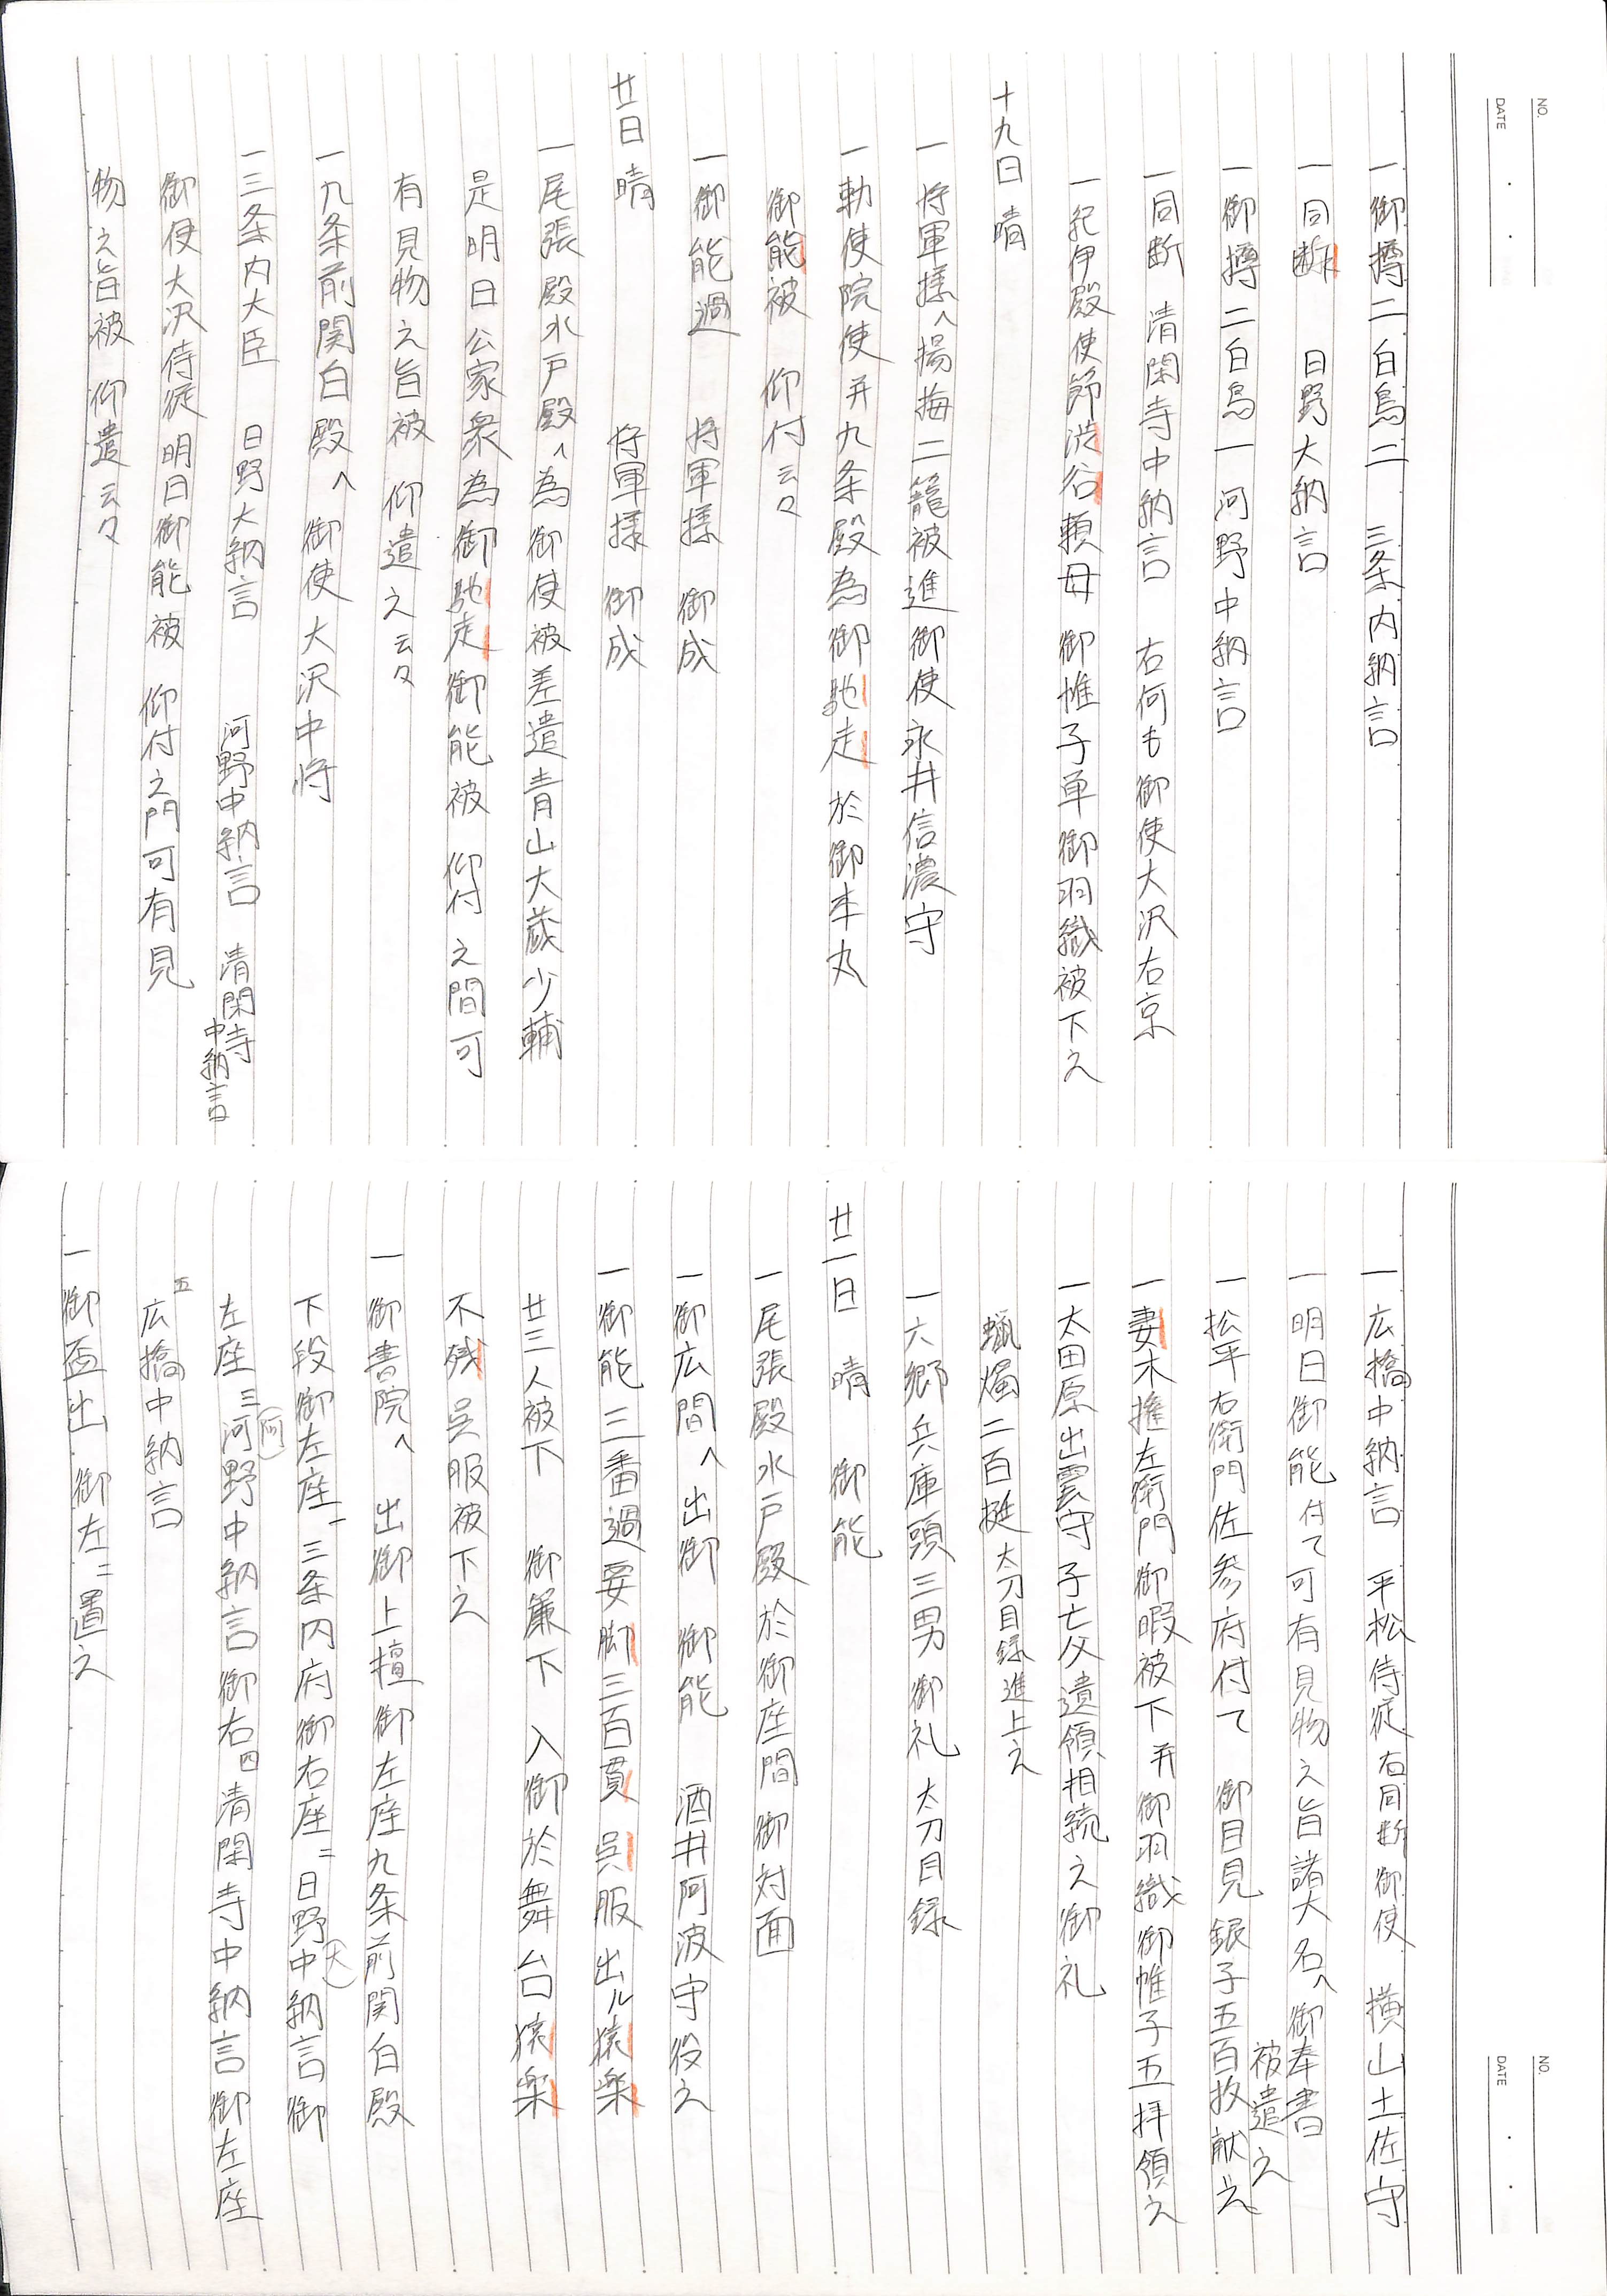 NO.
DATE
一御樽二白鳥二　三条内納言
一同断　日野大納言
一御樽二白鳥一　河野中納言
一同断　清閑寺中納言　右何も御使大沢右京
一紀伊殿使節渋谷頼母　御帷子単御羽織被下之
十九日　晴
一将軍様へ楊梅二籠被進御使永井信濃守
一勅使院使并九条殿為御馳走於御本丸
御能被　仰付云々
一御能過　将軍様　御成
廿日　晴　将軍様　御成
一尾張殿水戸殿へ為御使被差遣青山大蔵少輔
是明日公家衆為御馳走御能被　仰付之間可
有見物之旨被　仰遣之云々
一九条前関白殿へ　御使大沢中将
一三条内大臣　日野大納言　河野中納言　清閑寺中納言
御使大沢侍従明日御能被　仰付之門可有見
物之旨被　仰遣云々
NO.
DATE
一広橋中納言　平松侍従　右同断御使　横山土佐守
一明日御能付て可有見物之旨諸大名へ御奉書被遣之
一松平右衛門佐参府付て　御目見　銀子五百枚献之
一妻木権左衛門御暇被下并御羽織御帷子五拝領之
一太田原出雲守子亡父遺領相続之御礼
蠟燭二百挺　太刀目録進上之
一六郷兵庫頭三男御礼　太刀目録
廿一日　晴　御能
一尾張殿水戸殿於御座間　御対面
一御広間へ出御　御能　酒井阿波守役之
一御能三番過要脚三百貫　呉服出ル猿楽
廿三人被下　御簾下　入御於舞台猿楽
不残呉服被下之
一御書院へ　出御上檀御左座九条前関白殿
下段御左座ニ三条内府御右座ニ日野中(大)納言御
左座三河(阿)野中納言御右四清閑寺中納言御左座
五広橋中納言
一御盃出　御左ニ置之